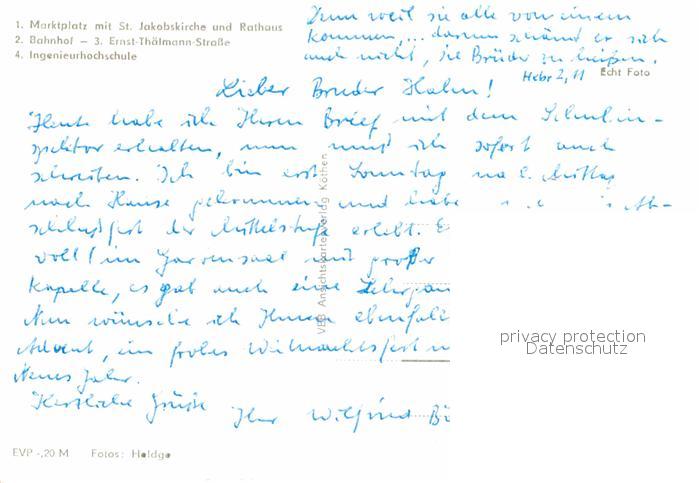 1. Marktplatz mit St. Jakobskirche und Rathaus
2. Bahnhof – 3. Ernst-Thälmann-Straße
4. Ingenieurhochschule
Denn weil sie alle von einem
kommen,... darum schämt er sich
auch nicht, sie Brüder zu heißen.
Hebr 2,11
Echt Foto
Lieber Bruder Hahn!
Heute habe ich Ihren Brief mit dem Schulin-
spektor erhalten, nun muß ich sofort auch
schreiben. Ich bin erst Sonntag nach Mittag
nach Hause gekommen und habe Ab-
schlußfest der Mittelstufe erlebt. E
voll! im Gartensaal mit großer
Kapelle, es gab auch eine
Nun wünsche ich Ihnen ebenfall
Advent, ein frohes Weihnachtsfest u
Neues Jahr.
Herzliche Grüße
Ihr Wilfried Bü
VEB Ansichtskartenverlag Köthen
privacy protection
Datenschutz
EVP -,20 M Fotos: Heldge